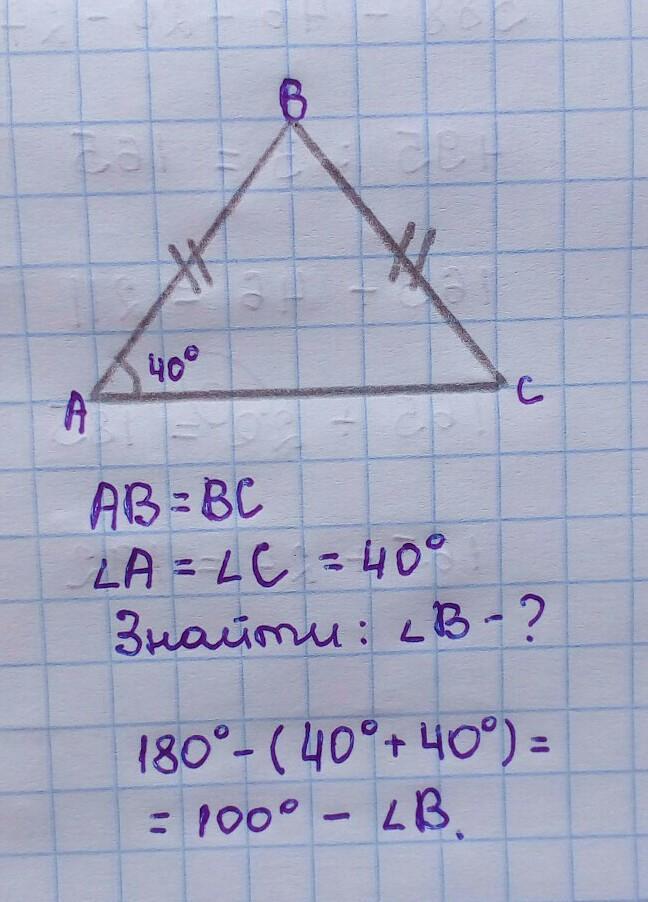 B
40°
A
C
AB = BC
∠A = ∠C = 40°
Знайти: ∠B - ?
180° - (40° + 40°) =
= 100° - ∠B.